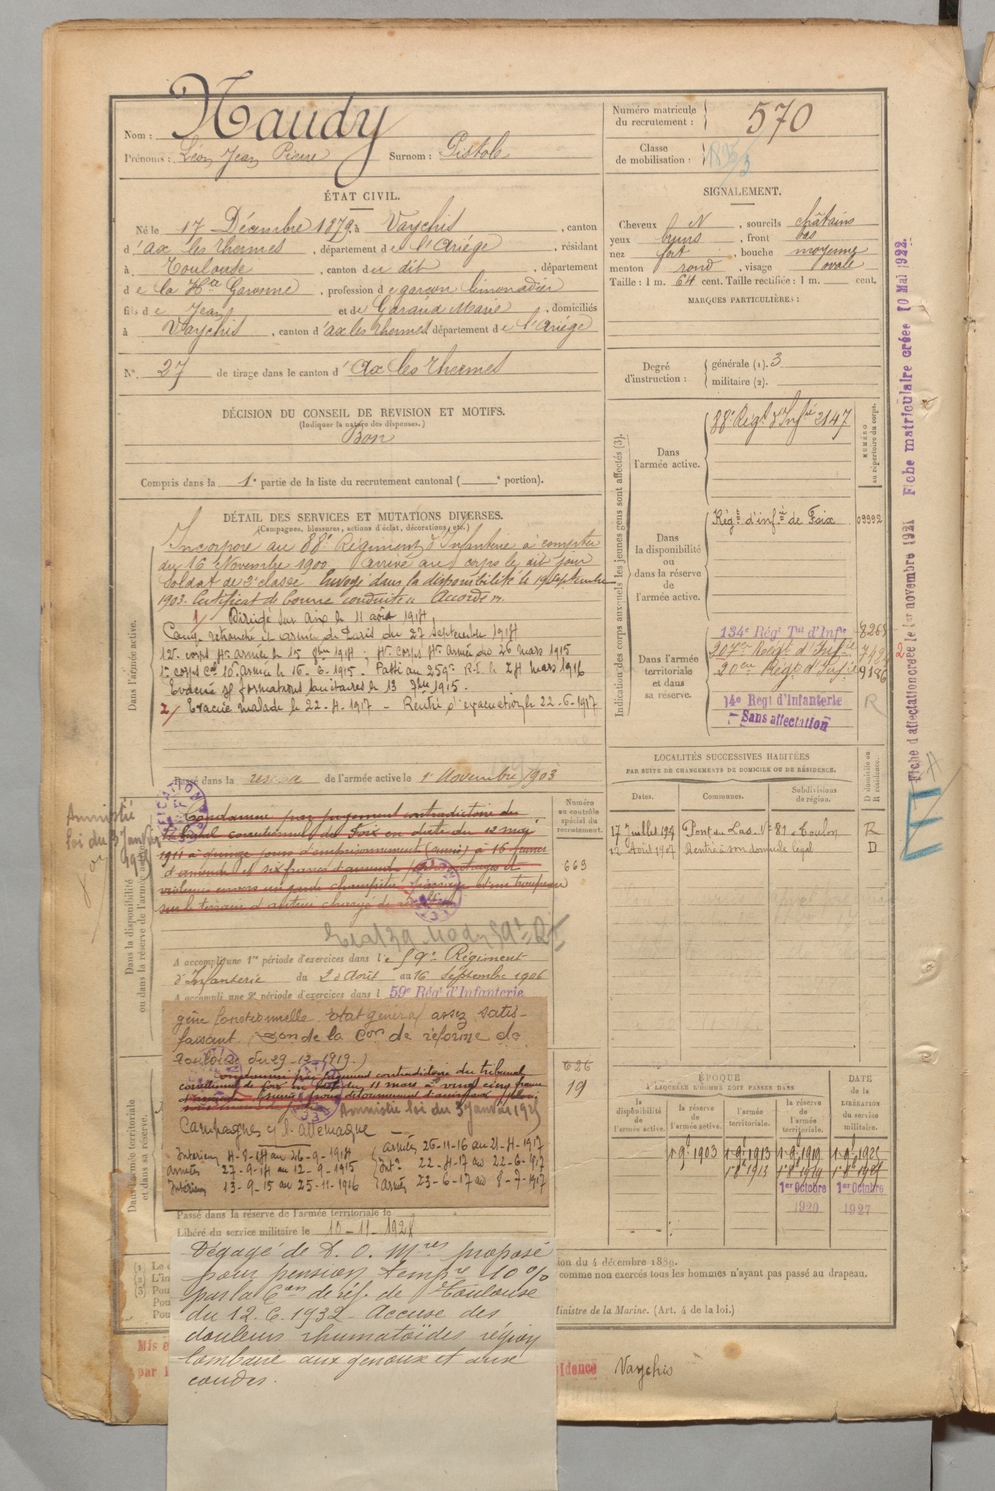 Nom : Naudy
Prénoms : Léon Jean Pierre Surnom : Pistole
Numéro matricule du recrutement : 570
Classe de mobilisation :
ÉTAT CIVIL.
Né le 17 Décembre 1879, à Vaychis, canton
d'ax les thermes, département de l'Ariège, résidant
à Toulouse, canton du dit, département
de la Hte Garonne, profession de garçon limonadier
fils de Jean et de Garaud Marie, domiciliés
à Vaychis, canton d'ax les thermes, département de l'Ariège
N° 27 de tirage dans le canton d'Ax les Thermes
SIGNALEMENT.
Cheveux N, sourcils châtains
yeux bruns, front bas
nez fort, bouche moyenne
menton rond, visage ovale
Taille : 1 m. 64 cent. Taille rectifiée : 1 m. cent.
MARQUES PARTICULIÈRES :
Degré d'instruction : générale (1). 3
militaire (2).
DÉCISION DU CONSEIL DE REVISION ET MOTIFS.
(Indiquer la nature des dispenses.)
Bon
Compris dans la 1e partie de la liste du recrutement cantonal ( e portion).
DÉTAIL DES SERVICES ET MUTATIONS DIVERSES.
(Campagnes, blessures, actions d'éclat, décorations, etc.)
Dans l'armée active.
Incorporé au 88e Régiment d'Infanterie à compter
du 16 Novembre 1900, arrivé au corps le dit jour
soldat de 2e classe. Envoyé dans la disponibilité le 19 septembre
1903. Certificat de bonne conduite "Accordé".
1/ Dirigé sur aix le 11 août 1914
Camp retranché et armée de Paris du 27 septembre 1914
12e corps 4e armée le 15 9bre 1914 ; 4e corps 4e armée du 26 mars 1915
1er corps Cal 10 armée le 16-6-1915. Passé au 259e R.I. le 24 mars 1916
Evacué formations sanitaires le 13 7bre 1915.
2/ Evacué malade le 22-4-1917 - Rentré d'évacuation le 22-6-1917
Passé dans la réserve de l'armée active le 1er Novembre 1903
Indication des corps auxquels les jeunes gens sont affectés (3).
NUMÉRO au répertoire du corps.
Dans l'armée active.
88e Régt d'Infie 2147
Dans la disponibilité ou dans la réserve de l'armée active.
Régt d'infie de Foix 09992
Dans l'armée territoriale et dans sa réserve.
134e Régt Tal d'Infie
207e Régt d'Infie
20e Régt d'Infie 9186
14e Régt d'Infanterie R
Sans affectation
Fiche d'affectation créée le 1er novembre 1921 Fiche matriculaire créée 10 Mai 1922.
LOCALITÉS SUCCESSIVES HABITÉES
PAR SUITE DE CHANGEMENTS DE DOMICILE OU DE RÉSIDENCE.
Dates. Communes. Subdivisions de région. D domicile ou R résidence.
17 Juillet 1907 Pont du Las. N° 81 Toulon R
12 Avril 1907 Rentré à son domicile légal D
Dans la disponibilité ou dans la réserve de l'armée active.
Amnistié
loi du 3 Janvier
1925
Numéro au contrôle spécial du recrutement.
Condamné par jugement contradictoire du
Tribunal correctionnel de Foix en date du 12 mai
1911 à quinze jours d'emprisonnement (sursis) à 16 francs
d'amende et six francs d'amende outrages et
violences envers un garde champêtre d'un troupeau
sur le terrain d'autrui chargé de récoltes
669
A accompli une 1re période d'exercices dans le 59e Régiment
d'Infanterie du 20 Août au 16 Septembre 1906
A accompli une 2e période d'exercices dans l 59e Régt d'Infanterie
gêne fonctionnelle. Etat général assez satis-
faisant. (Don de la Con de réforme de
Toulouse du 29-12-1919.)
Condamné par jugement contradictoire du tribunal
correctionnel de Foix en date du 11 mars à vingt cinq francs
Amnistié loi du 3 Janvier 1925
Campagnes c/ l'Allemagne
Intérieur 4-8-14 au 26-9-1914
armées 27-9-14 au 12-9-1915
Intérieur 13-9-15 au 25-11-1916
armées 26-11-16 au 21-4-1917
Intr 22-4-17 au 22-6-1917
armées 23-6-17 au 8-7-1917
Dans l'armée territoriale et dans sa réserve.
626
19
Passé dans la réserve de l'armée territoriale le
Libéré du service militaire le 10-11-1928
ÉPOQUE
À LAQUELLE L'HOMME DOIT PASSER DANS
DATE de la LIBÉRATION du service militaire.
la disponibilité de l'armée active. la réserve de l'armée active. l'armée territoriale. la réserve de l'armée territoriale.
1 9bre 1903 1 9bre 1913 1 9bre 1919
1er Octobre 1920 1er Octobre 1927
Dégagé de T. O. Mres proposé
pour pension tempre 10 %
par la Con de réf. de Toulouse
du 12.6.1932. Accuse des
douleurs rhumatoïdes région
lombaire aux genoux et aux
coudes.
ion du 4 décembre 1889.
comme non exercés tous les hommes n'ayant pas passé au drapeau.
Ministre de la Marine. (Art. 4 de la loi.)
sidence Vaychis